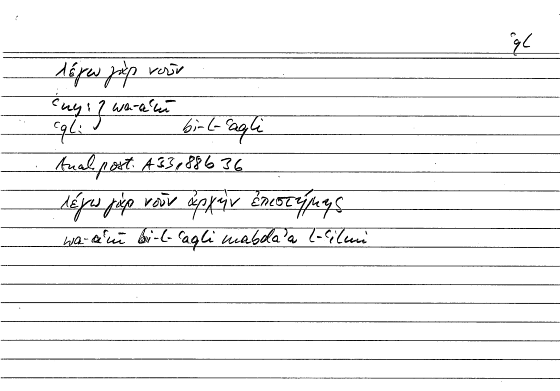 ʿql
λέγω γὰρ νοῦν
ʿny: } wa-aʿnī
ʿql: } bi-l-ʿaqli
Anal. post. A33, 88b 36
λέγω γὰρ νοῦν ἀρχὴν ἐπιστήμης
wa-aʿnī bi-l-ʿaqli mabdaʾa l-ʿilmi